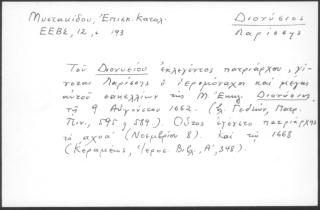 Μυστακίδου, Ἐπισκ. Καταλ.
ΕΕΒΣ, 12, σ 193
Διονύσιος
Λαρίσσης
Τοῦ Διονυσίου ἐκλεγέντος πατριάρχου, γίνεται Λαρίσσης ὁ ἱερομόναχος καὶ μέγας
αὐτοῦ σακελλίων τῆς Μ. Ἐκκλ. Διονύσιος,
τῇ 9 Αὐγούστου 1662. (βλ. Γεδεών, Πατρ.
Πιν., 595, 589.). Οὗτος ἐγένετο πατριάρχης
τὸ αχοα' (Νοεμβρίου 8). καὶ τῇ 1668
(Κεραμέως, Ἱεροσ. Βιβλ, Α', 348).